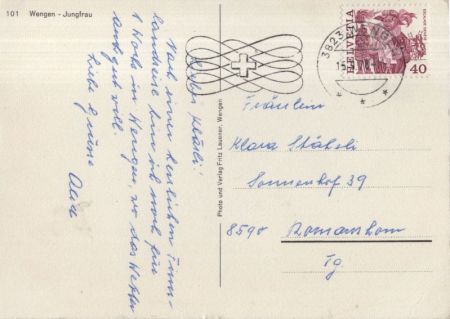 101 Wengen - Jungfrau
Liebes Kläsli!
Nach einer herrlichen Tram-
landreise bin ich noch für
1 Woche in Wengen, wo das Wetter
auch gut soll.
Liebe Grüsse
Photo und Verlag Fritz Lauener, Wengen
3823 WENGEN
HELVETIA
40
Fräulein
Klara Stäheli
Sonnenhof 39
8590 Romanshorn
Tg.